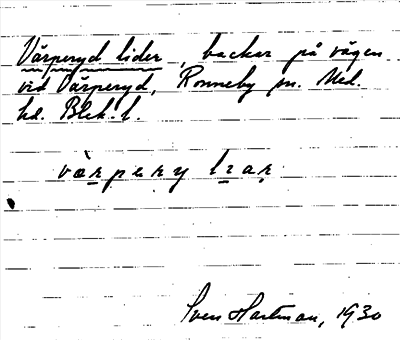 Värperyd lider, backar på vägen
vid Värperyd, Ronneby sn. Med.
hd. Blek. l.
Sven Hartman, 1930